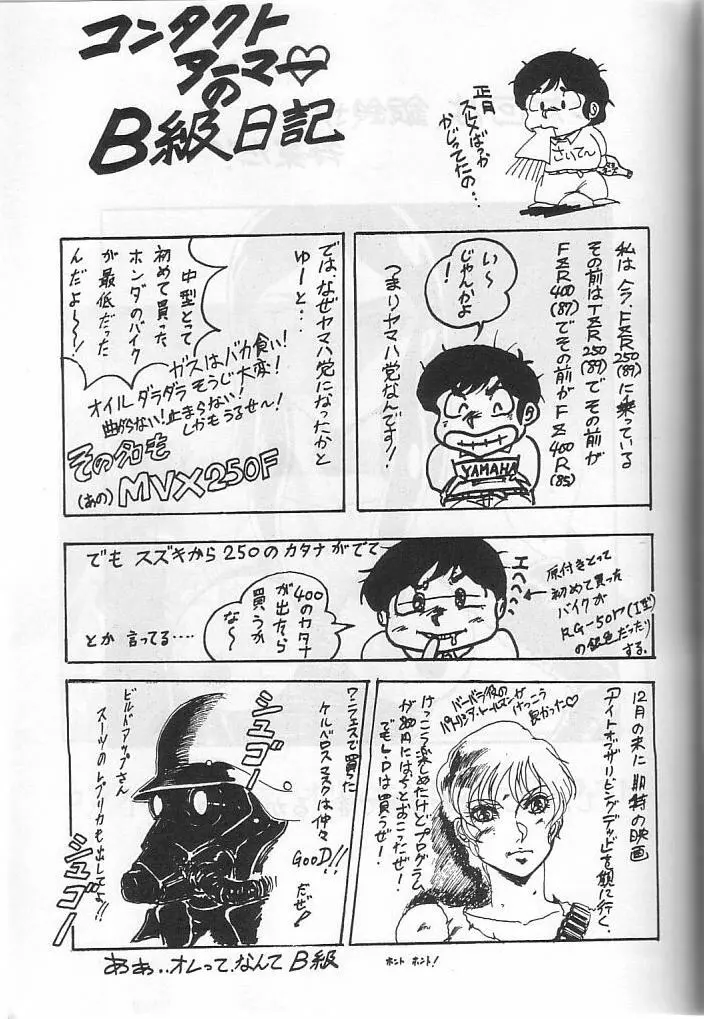 コンタクト
アーマー
の
B級日記
正月
スルメばっか
かじってたの…
さいてー
私は今、FZR250(89)に乗っている
その前はTZR250(89)でその前が
FZR400(87)でその前がFZ400R(85)
い〜
じゃんかよ
!
つまりヤマハ党なんです!
YAMAHA
では、なぜヤマハ党になったかと
ゆーと…
中型とって
初めて買った
ホンダのバイク
が最低だった
んだよ〜!
ガスはバカ食い!
オイルダラダラそうじ大変!
曲がらない!止まらない!
しかもうるせ〜!
その名も
(あの)MVX250F
でもスズキから250のカタナがでて
400のカタナ
が出たら
買うか
な〜
とか言ってる….
エヘヘヘ
原付きとって
初めて買った
バイクが
RG-50Γ(I型)
の銀色だったり
する。
12月の末に期待の映画
「ナイトオブザリビングデッド」を観に行く、
バーバラ役の
パトリシア・トールマンが
けっこう
良かった♡
けっこう楽しめたけどプログラム
が800円にはちとおこったぜ!
でもL・Dは買うぜ!
ワンフェスで買った
ケルベロスマスクは仲々
GooD!!
だぜ!
シュゴー
ビルドアップさん
スーツのレプリカも出してよ!!
シュゴー
あぁ..オレってなんてB級
ホント ホント!